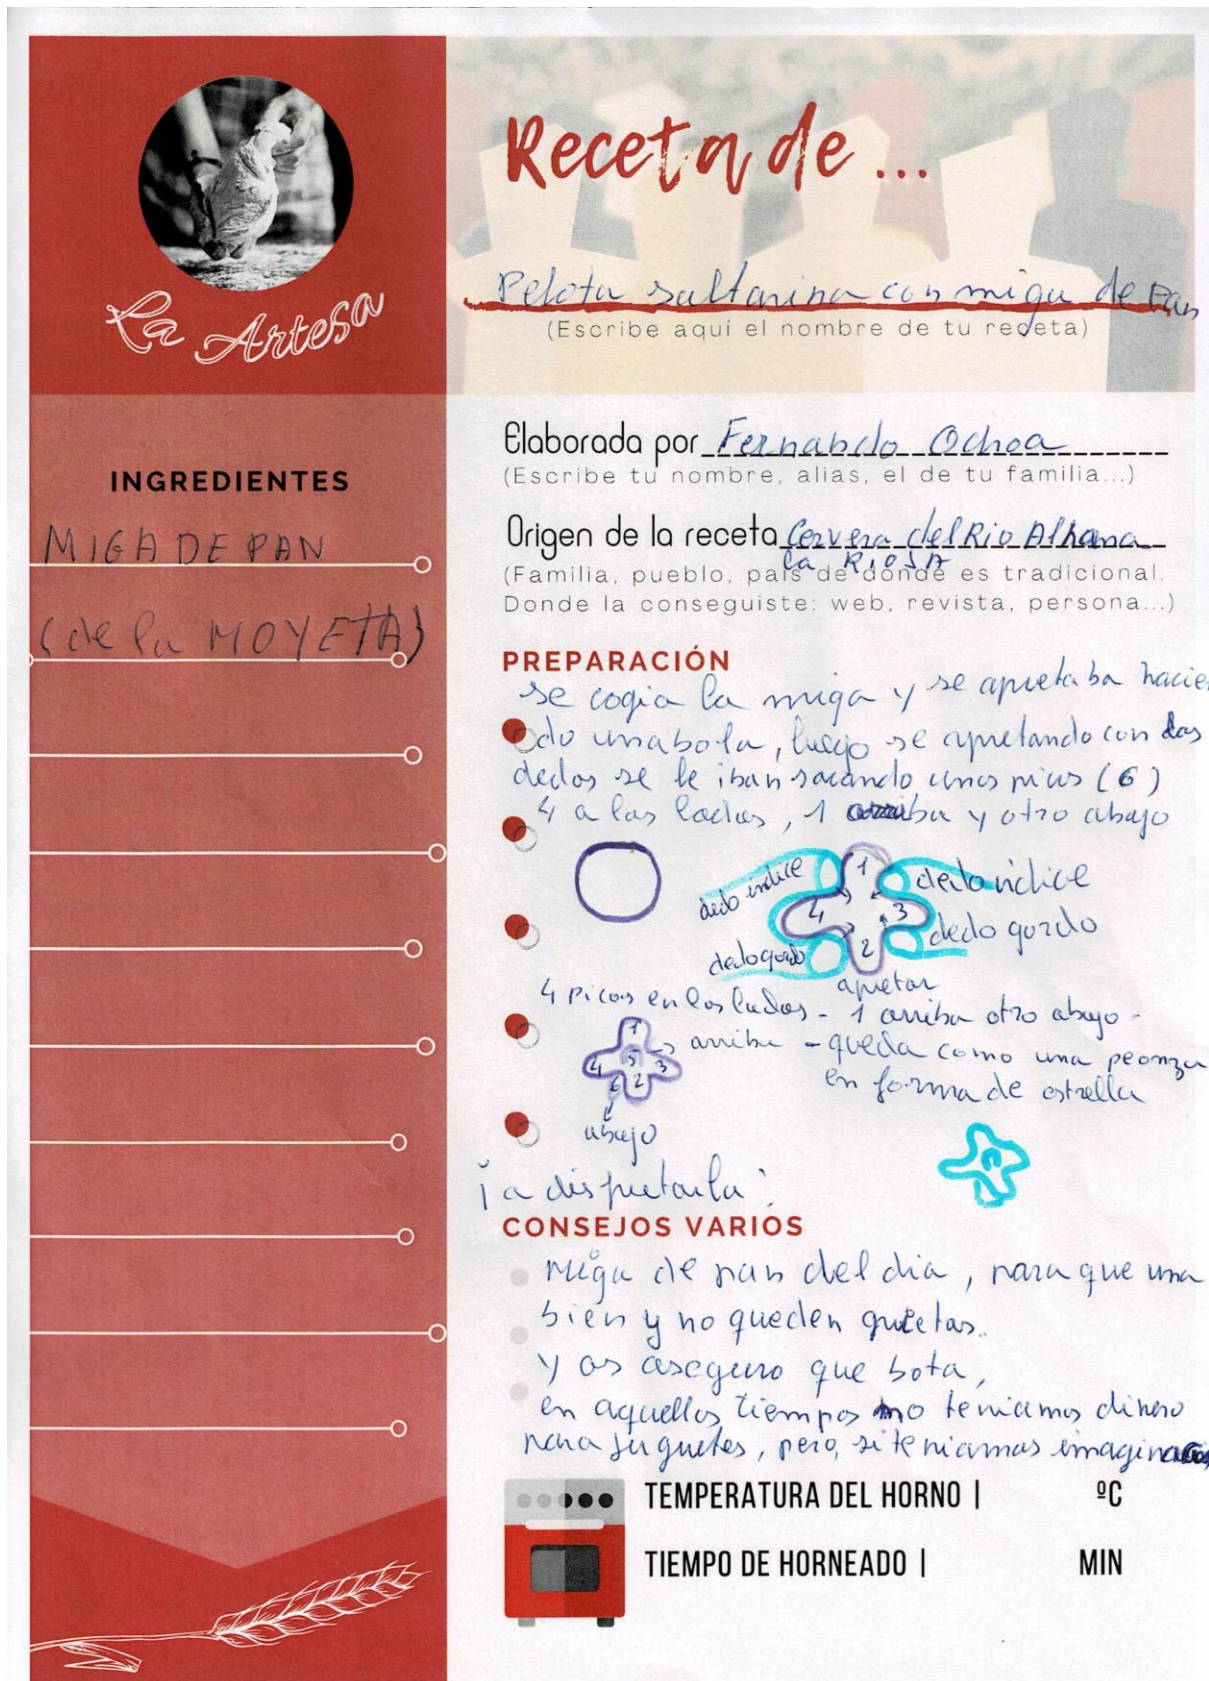 La Artesa
Receta de ...
Pelota saltarina con miga de Pan
(Escribe aquí el nombre de tu receta)
Elaborada por Fernando Ochoa
(Escribe tu nombre, alias, el de tu familia...)
Origen de la receta Cervera del Rio Alhama
La RIOJA
(Familia, pueblo, país de donde es tradicional.
Donde la conseguiste: web, revista, persona...)
INGREDIENTES
MIGA DE PAN
(de la MOYETA)
PREPARACIÓN
se cogia la miga y se apretaba hacien
do una bola, luego se apretando con dos
dedos se le iban sacando unos picos (6)
4 a los lados, 1 arriba y otro abajo
dedo indice
1
dedo indice
4
3
dedo gordo
2
dedo gordo
apretar
4 picos en los lados - 1 arriba otro abajo -
1
arriba - queda como una peonza
4 5 3
en forma de estrella
6 2
abajo
¡a disfrutarla!
CONSEJOS VARIOS
miga de pan del dia, para que una
bien y no queden grietas.
y os aseguro que bota,
en aquellos tiempos no teniamos dinero
para juguetes, pero, si teniamos
TEMPERATURA DEL HORNO | ºC
TIEMPO DE HORNEADO | MIN